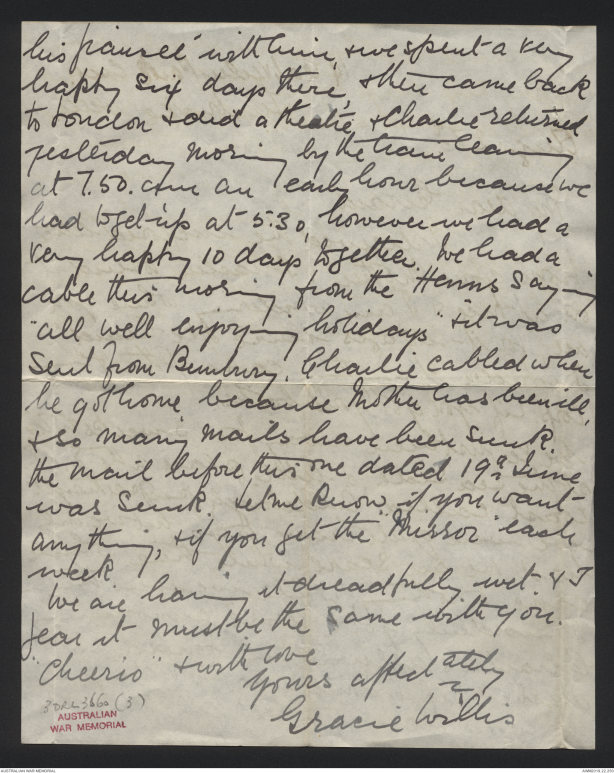 his fiancée with him, & we spent a very
happy six days there, & then came back
to London & did a theatre, & Charlie returned
yesterday morning by the train leaving
at 7.50. a.m an early hour because we
had to get up at 5.30, however we had a
very happy 10 days together. We had a
cable this morning from the Henns saying
"all well enjoying holidays" & it was
sent from Bunbury. Charlie cabled when
he got home because Mother has been ill,
& so many mails have been sunk.
the mail before this one dated 19th June
was sunk. Let me know if you want
anything, & if you get the "Mirror" each
week
We are having it dreadfully wet. & I
fear it must be the same with you.
"Cheerio" & with love
Yours affectately
Gracie Willis
3DRL3660 (3)
AUSTRALIAN
WAR MEMORIAL
AUSTRALIAN WAR MEMORIAL